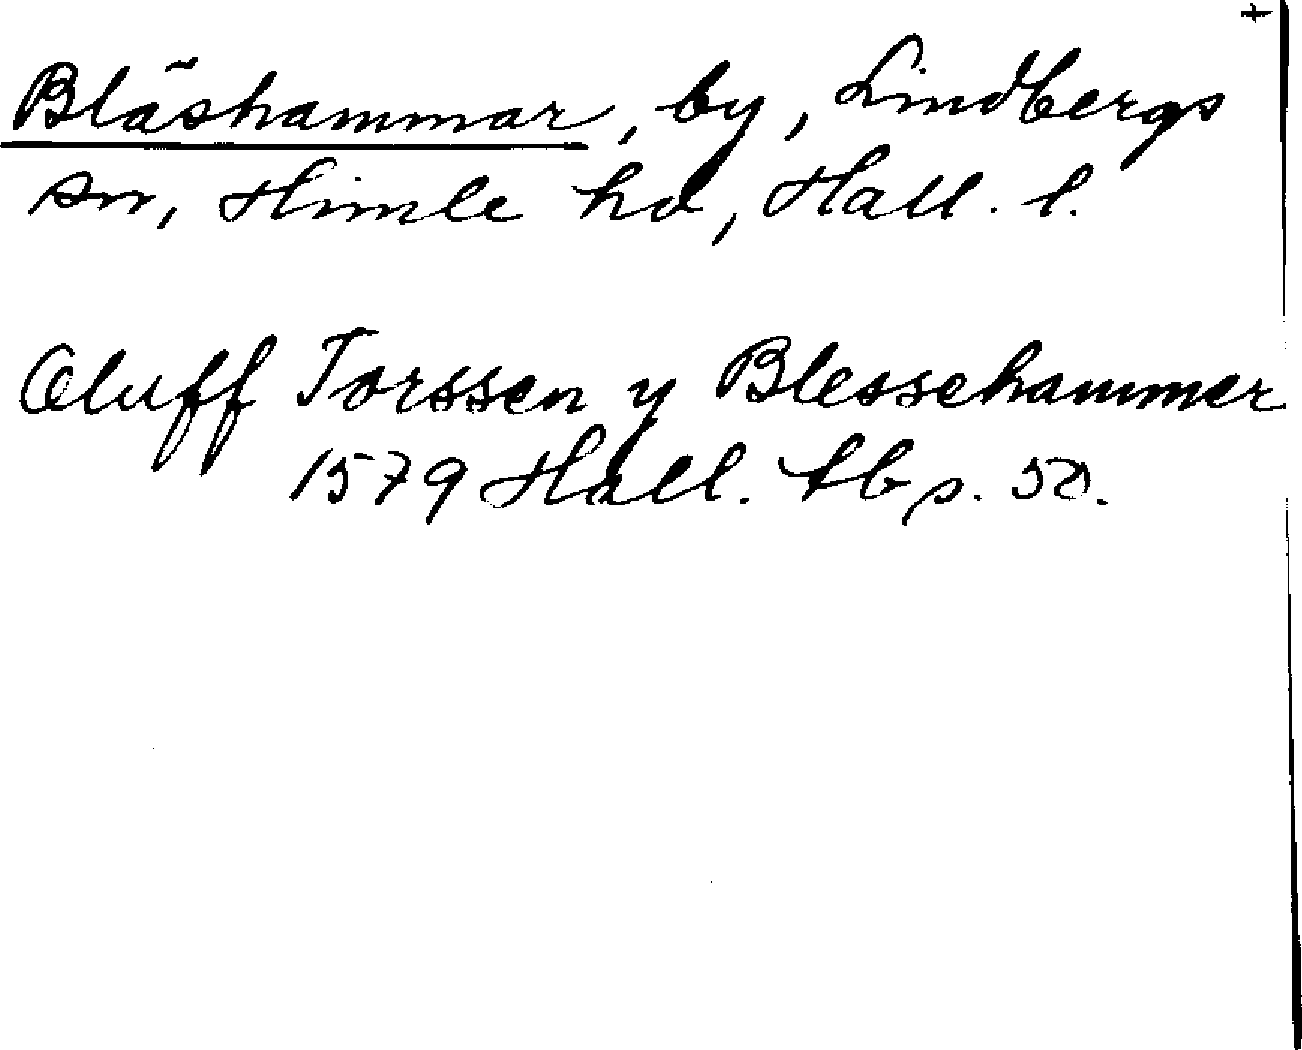 +
Bläshammar, by, Lindbergs
sn, Himle hd, Hall. l.
Oluff Torssen y Blessehammer
1579 Hall. tb s. 50.